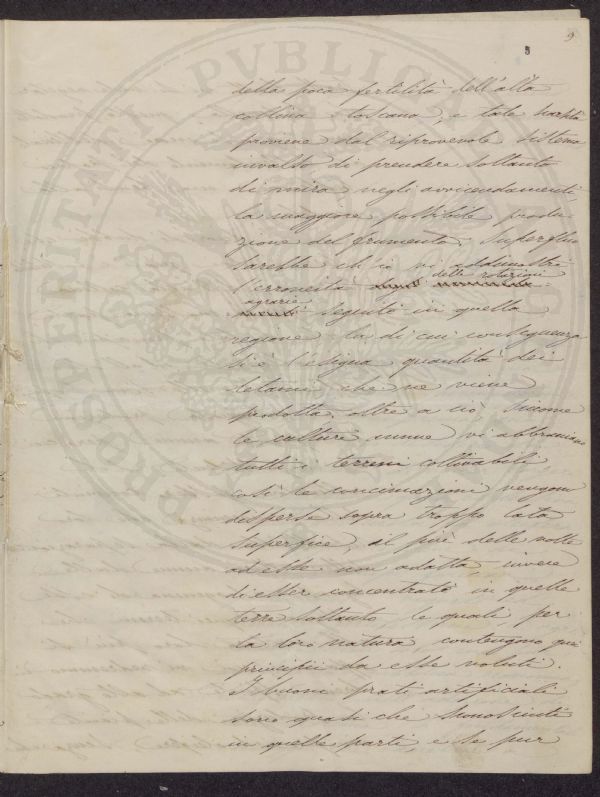 9
3
della poca fertilità dell'alta
collina toscana, e tale scarsità
proviene dal riprovevole sistema
invalso di prendere soltanto
di mira negli avvicendamenti,
la maggiore possibile produ
zione del frumento. Superfluo
sarebbe ch'io vi addimostri
delle rotazioni
l'erroneità
agrarie
seguito in quella
regione la di cui conseguenza
si è l'esigua quantità dei
letami che ne viene
prodotta, oltre a ciò, siccome
le culture annue vi abbracciano
tutti i terreni coltivabili
così le concimazioni vengono
disperse sopra troppo lata
superfice, al più delle volte
ad esse non adatta, invece
di esser concentrato in quelle
terre soltanto le quali per
la loro natura contengono quei
principii da esse voluti.
I buoni prati artificiali
sono quasi che sconosciuti
in quelle parti, e se pur
PROSPERITATI PVBLICAE